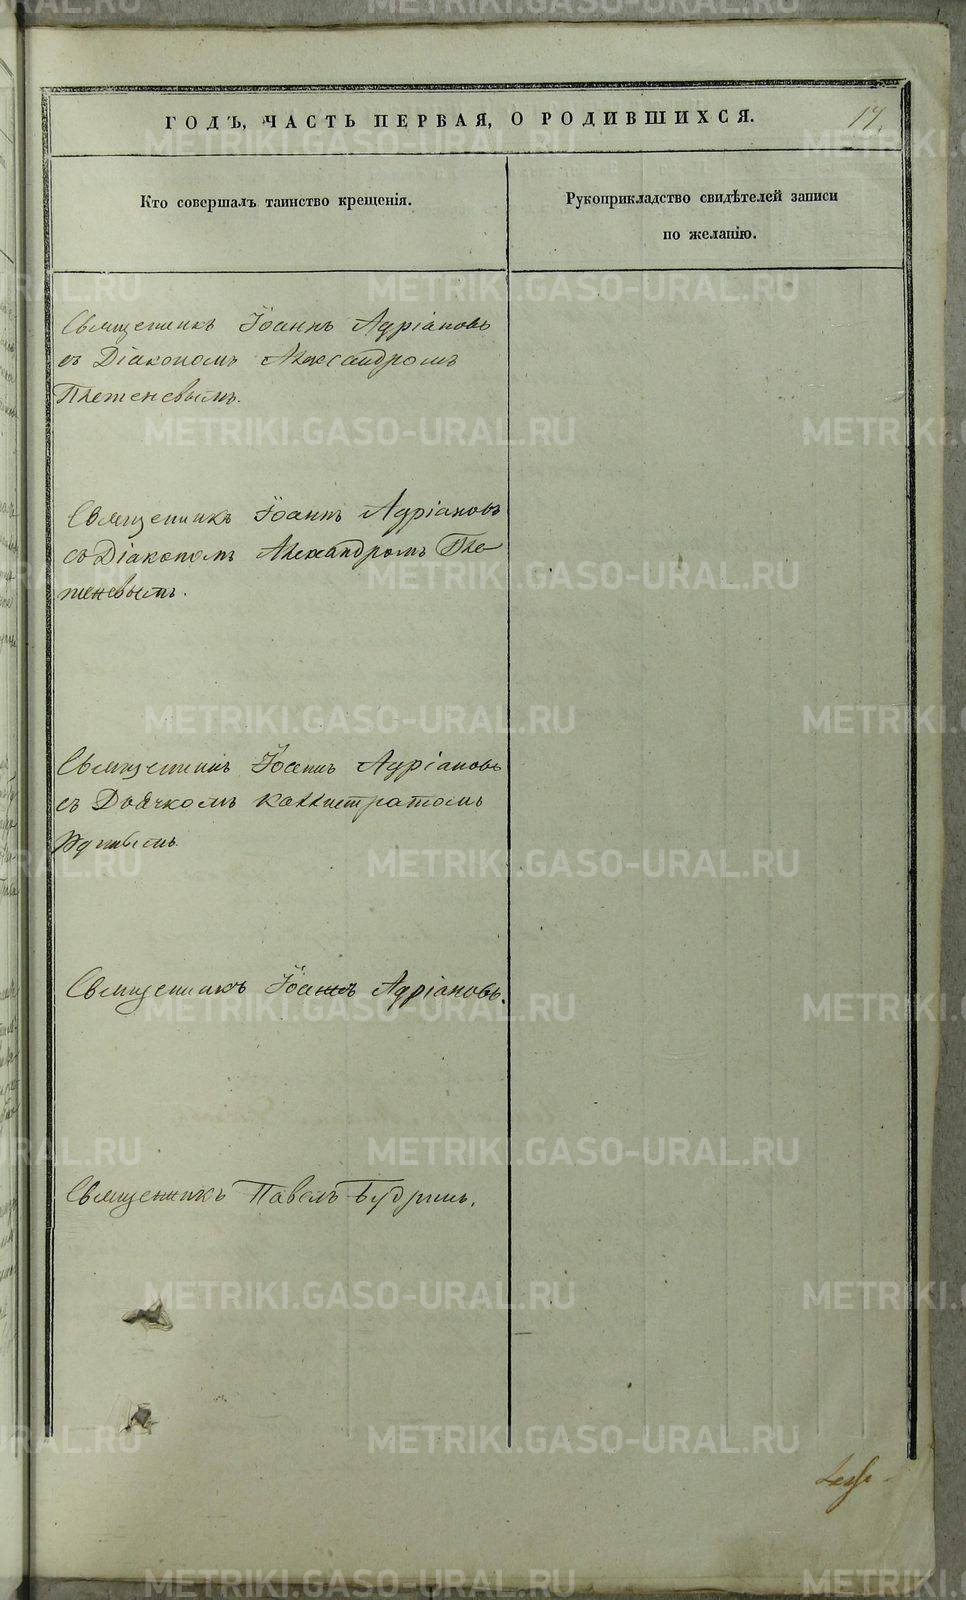 ГОДЪ, ЧАСТЬ ПЕРВАЯ, О РОДИВШИХСЯ.
17.
Кто совершалъ таинство крещенія.
Рукоприкладство свидѣтелей записи
по желанію.
Священникъ Іоаннъ Адріановъ
съ Діакономъ Александромъ
Плетеневымъ.
Священникъ Іоаннъ Адріановъ
съ Діакономъ Александромъ Пле
теневымъ.
Священникъ Іоаннъ Адріановъ
съ Дьячкомъ Каллистратомъ
Священникъ Іоаннъ Адріановъ.
Священникъ Павелъ Будринъ.
METRIKI.GASO-URAL.RU